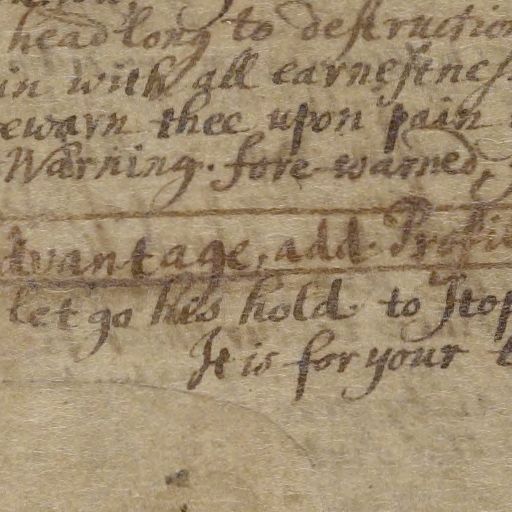 head long to destruction
in with all earnestness
ewarn thee upon pain
Warning. fore-warned,
dvantage, add. Profi
let go his hold. to stop
It is for your